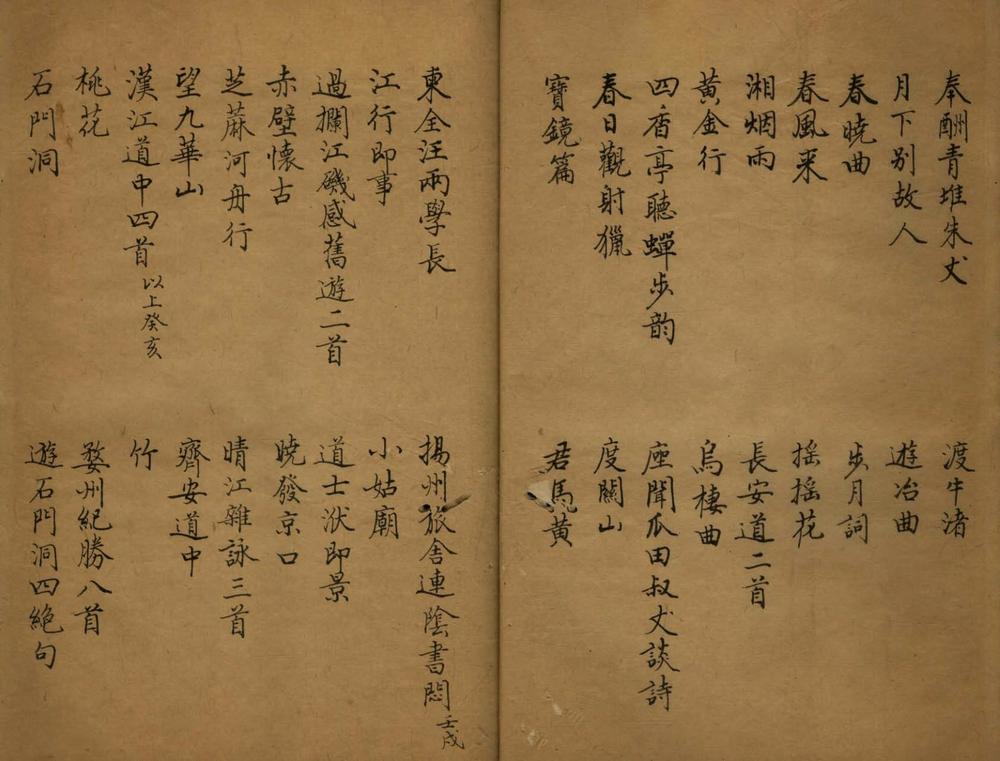 奉酬青堆朱丈
渡牛渚
月下别故人
遊冶曲
春曉曲
步月詞
春風来
摇摇花
湘烟雨
長安道二首
黄金行
烏棲曲
四香亭聽蟬步韵
座聞瓜田叔丈談詩
春日觀射獵
度關山
寶鏡篇
君馬黄
東全汪兩學長
揚州旅舍連陰書悶 壬戌
江行即事
小姑廟
過攔江磯感舊遊二首
道士洑即景
赤壁懷古
曉發京口
芝蔴河舟行
晴江雜詠三首
望九華山
齊安道中
漢江道中四首 以上癸亥
竹
桃花
婺州紀勝八首
石門洞
遊石門洞四絶句